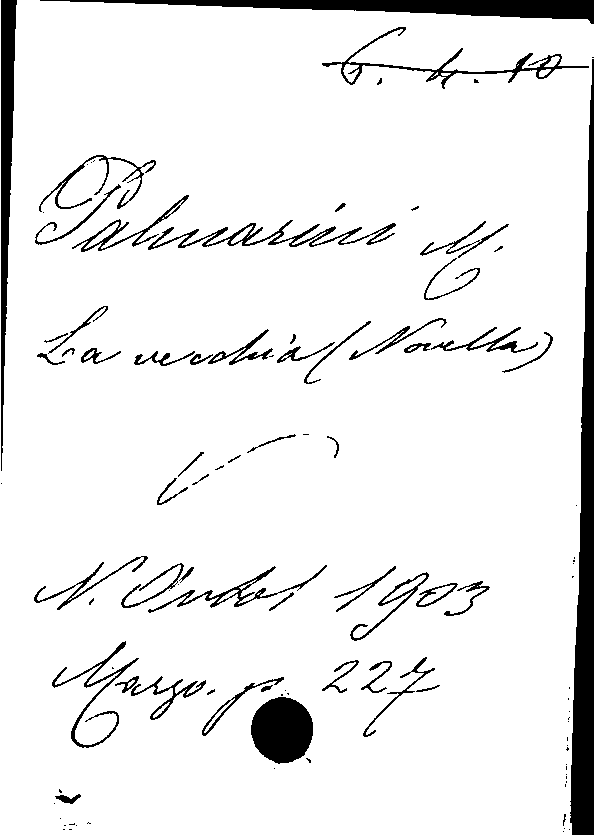 6. 4. 10
Palmarini M.
La vecchia (Novella)
N. 1903
Marzo. p. 227